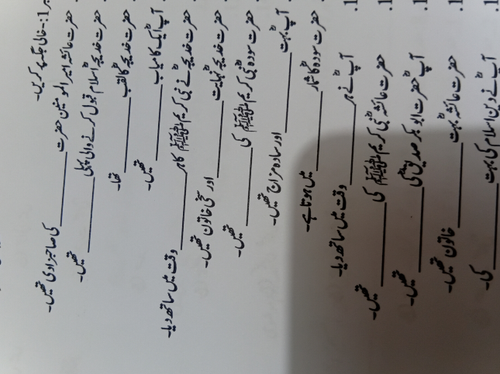 بر1:۔خالی جگہ پُر کریں۔
حضرت عائشہؓ امیر المومنین حضرت ________ کی صاحبزادی تھیں۔
حضرت خدیجہؓ اسلام قبول کرنے والی پہلی ________ تھیں۔
حضرت خدیجہؓ کا لقب ________ تھا۔
آپؓ ایک کامیاب ________ تھیں۔
حضرت خدیجہؓ نے نبی کریم ﷺ کا ہر ________ وقت میں ساتھ دیا۔
حضرت خدیجہؓ نہایت ________ اور سخی خاتون تھیں۔
حضرت سودہؓ نبی کریم ﷺ کی ________ تھیں۔
آپؓ بہت ________ اور سادہ مزاج تھیں۔
حضرت سودہؓ کا شمار ________ میں ہوتا ہے۔
1. آپؓ نے ہر ________ وقت میں ساتھ دیا۔
1. حضرت عائشہؓ نبی کریم ﷺ کی ________ تھیں۔
1. آپؓ حضرت ابو بکر صدیقؓ کی ________ تھیں۔
1. حضرت عائشہؓ بہت ________ خاتون تھیں۔
1. آپؓ نے دین اسلام کی بہت ________ کی۔